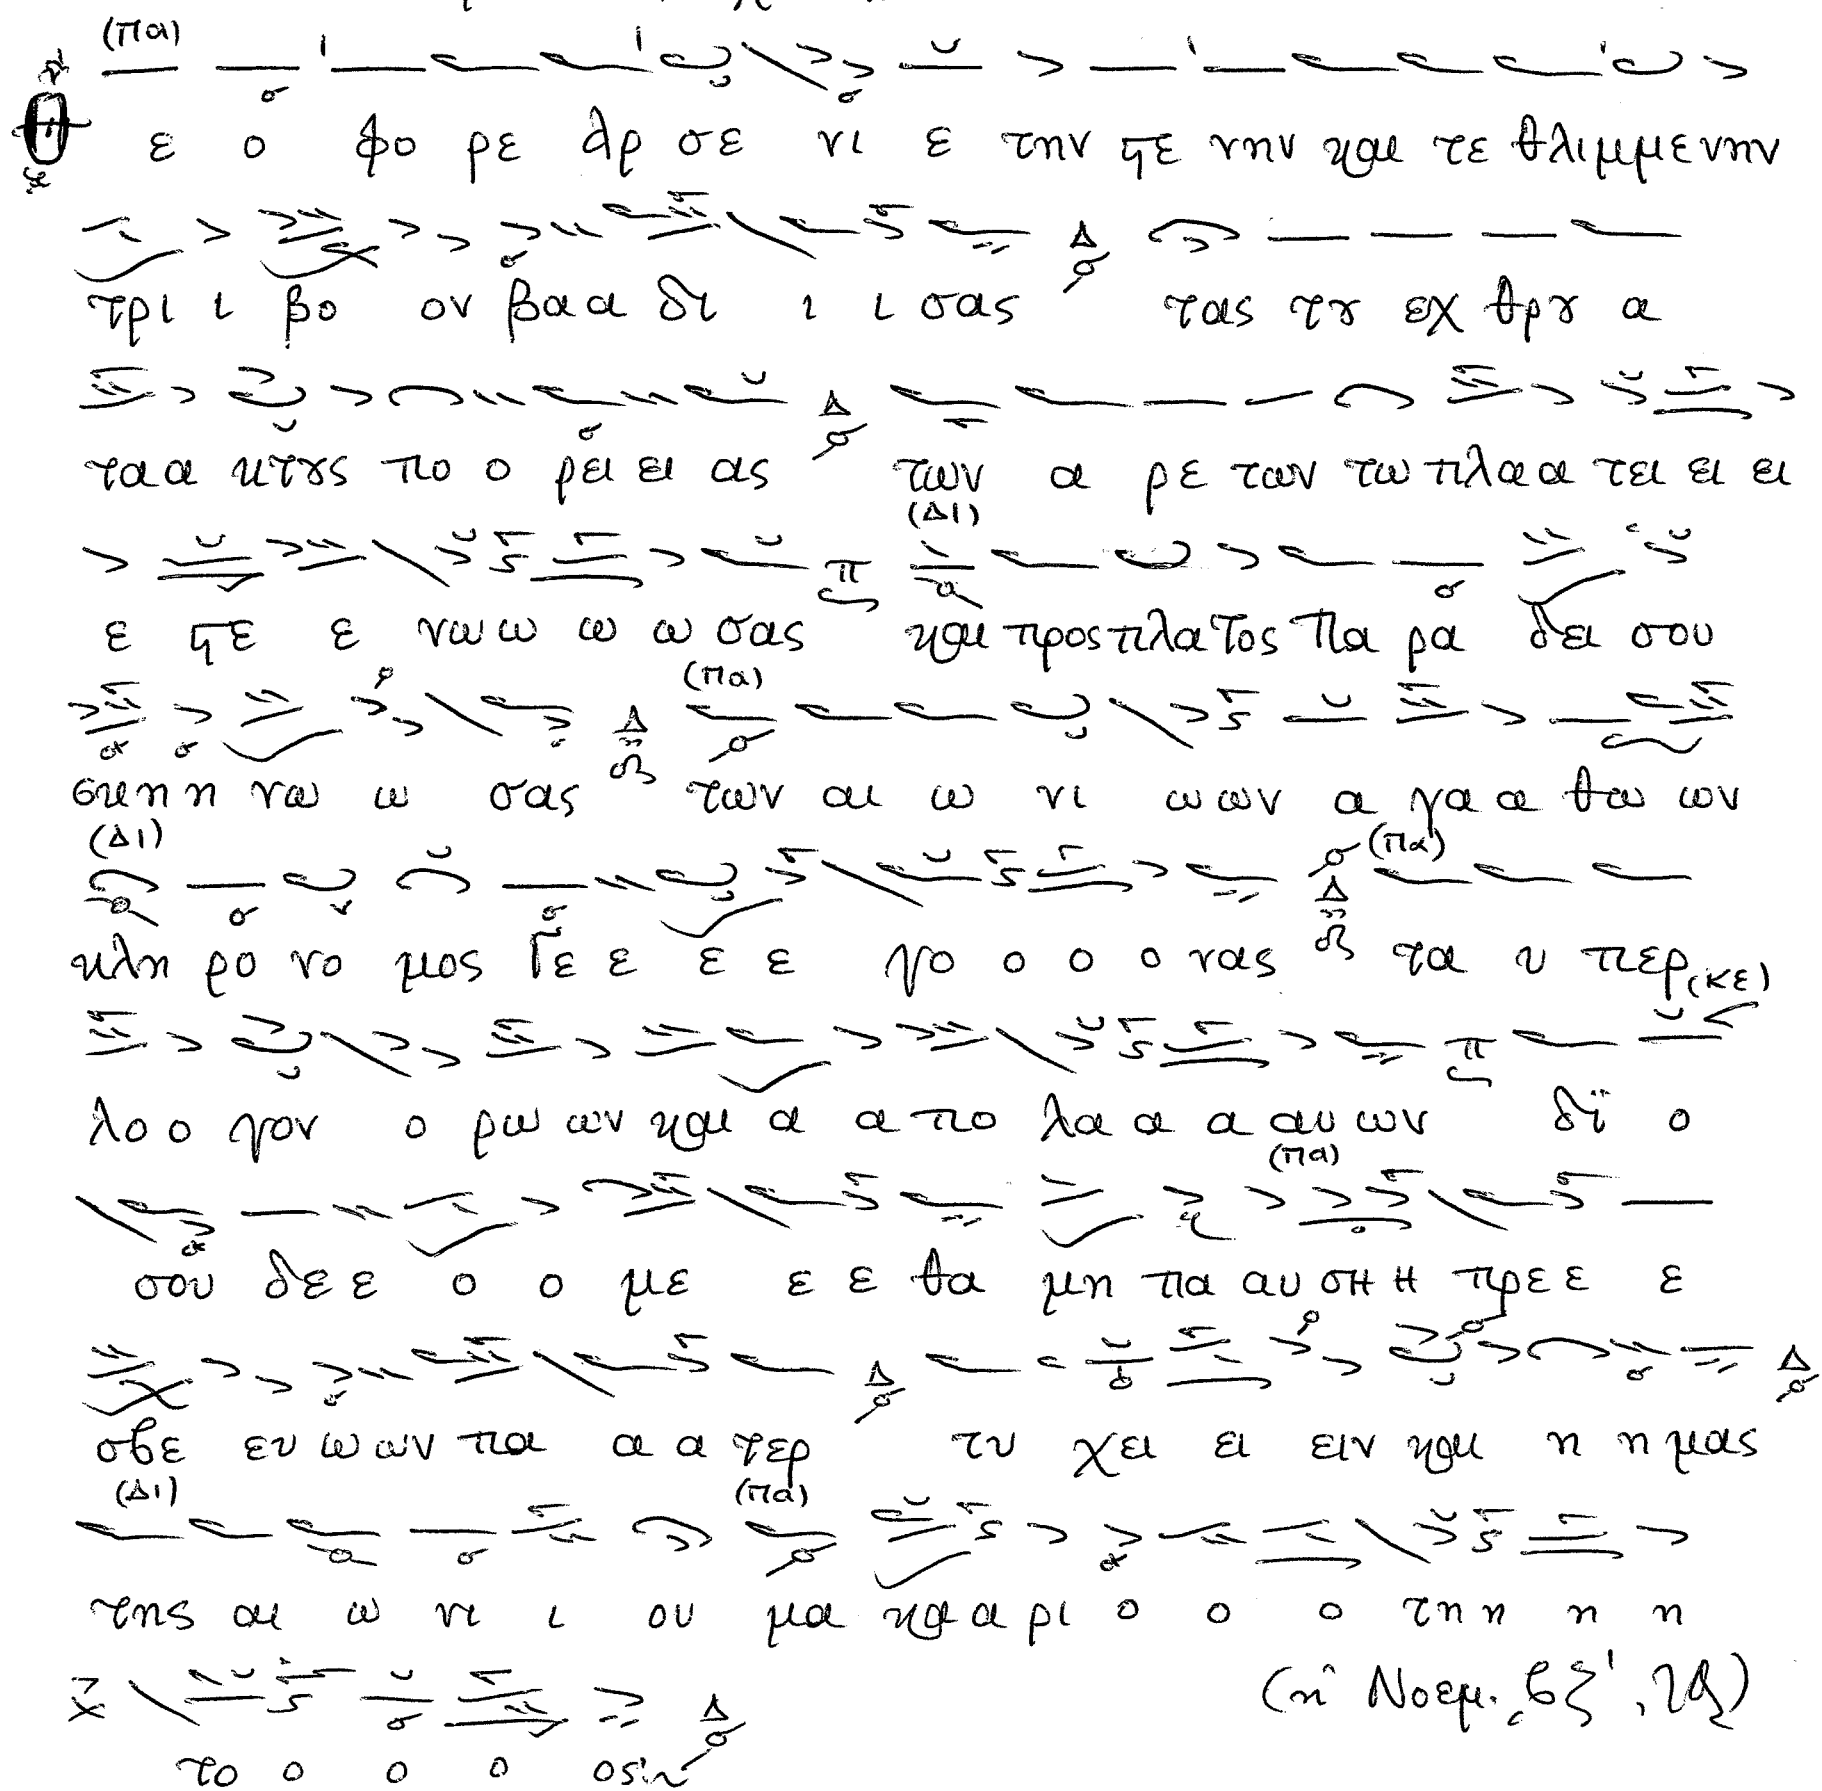 (Πα)
Θ ε ο φο ρε Αρ σε νι ε την ϛε νην και τε θλιμμενην
τρι ι βο ον βαα δι ι ι σας τας τȣ εχ θρȣ α
ταα κτȣς πο ο ρει ει ας των α ρε των τω πλαα τει ει ει
(Δι)
ε ϛε ε νωω ω ω σας και προς πλα τος Πα ρα δει σου
(Πα)
σκη η νω ω σας των αι ω νι ωων α γα α θω ων
(Δι) (Πα)
κλη ρο νο μος Γε ε ε ε γο ο ο ο νας τα υ περ
(Κε)
λο ο γον ο ρω ων και α α πο λα α α αυ ων δϊ ο
(Πα)
σου δε ε ο ο με ε ε θα μη πα αυ ση η πρε ε ε
σβε ευ ω ων πα α α τερ τυ χει ει ειν και η η μας
(Δι) (Πα)
της αι ω νι ι ου μα κα α ρι ο ο ο τη η η η
το ο ο ο ος
(η΄ Νοεμ. ͵βζ΄,